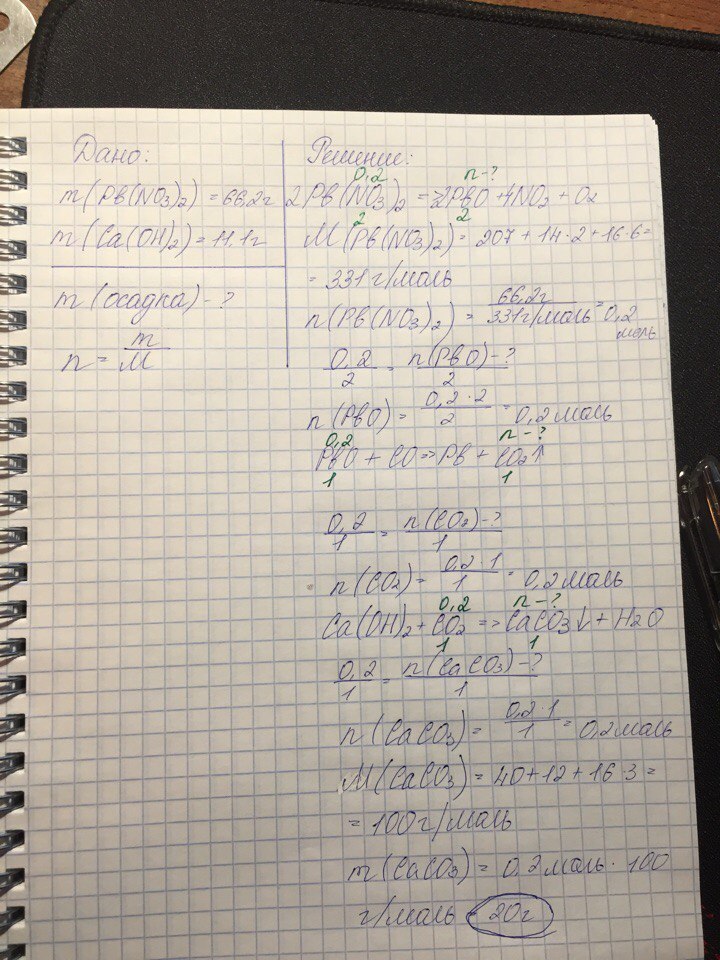 Дано:
m(Pb(NO3)2) = 66,2г
m(Ca(OH)2) = 11.1г
m(осадка) - ?
n = m/M
Решение:
0,2 n-?
2Pb(NO3)2 => 2PbO + 4NO2 + O2
2 2
M(Pb(NO3)2) = 207 + 14·2 + 16·6 =
= 331 г/моль
n(Pb(NO3)2) = 66,2г / 331г/моль = 0,2 моль
0,2/2 = n(PbO)-?/2
n(PbO) = 0,2·2/2 = 0,2 моль
0,2 n-?
PbO + CO => Pb + CO2↑
1 1
0,2/1 = n(CO2)-?/1
n(CO2) = 0,2·1/1 = 0,2 моль
0,2 n-?
Ca(OH)2 + CO2 => CaCO3↓ + H2O
1 1
0,2/1 = n(CaCO3)-?/1
n(CaCO3) = 0,2·1/1 = 0,2 моль
M(CaCO3) = 40 + 12 + 16·3 =
= 100 г/моль
m(CaCO3) = 0,2 моль · 100
г/моль = 20г